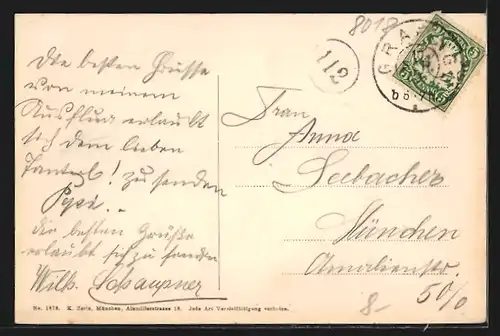 8018
Die besten Grüsse
von meinem
Ausflug erlaubt
sich dem lieben
Tanterl! zu senden
Pepi...
die besten Grüße
erlaubt sich zu senden
Wilh. Schaupner
112
GRAF
5 5
Frau
Anna
Seebacher
München
Amalienstr.
8- 50%
No. 1878. K. Zerle, München, Jede Art Vervielfältigung verboten.